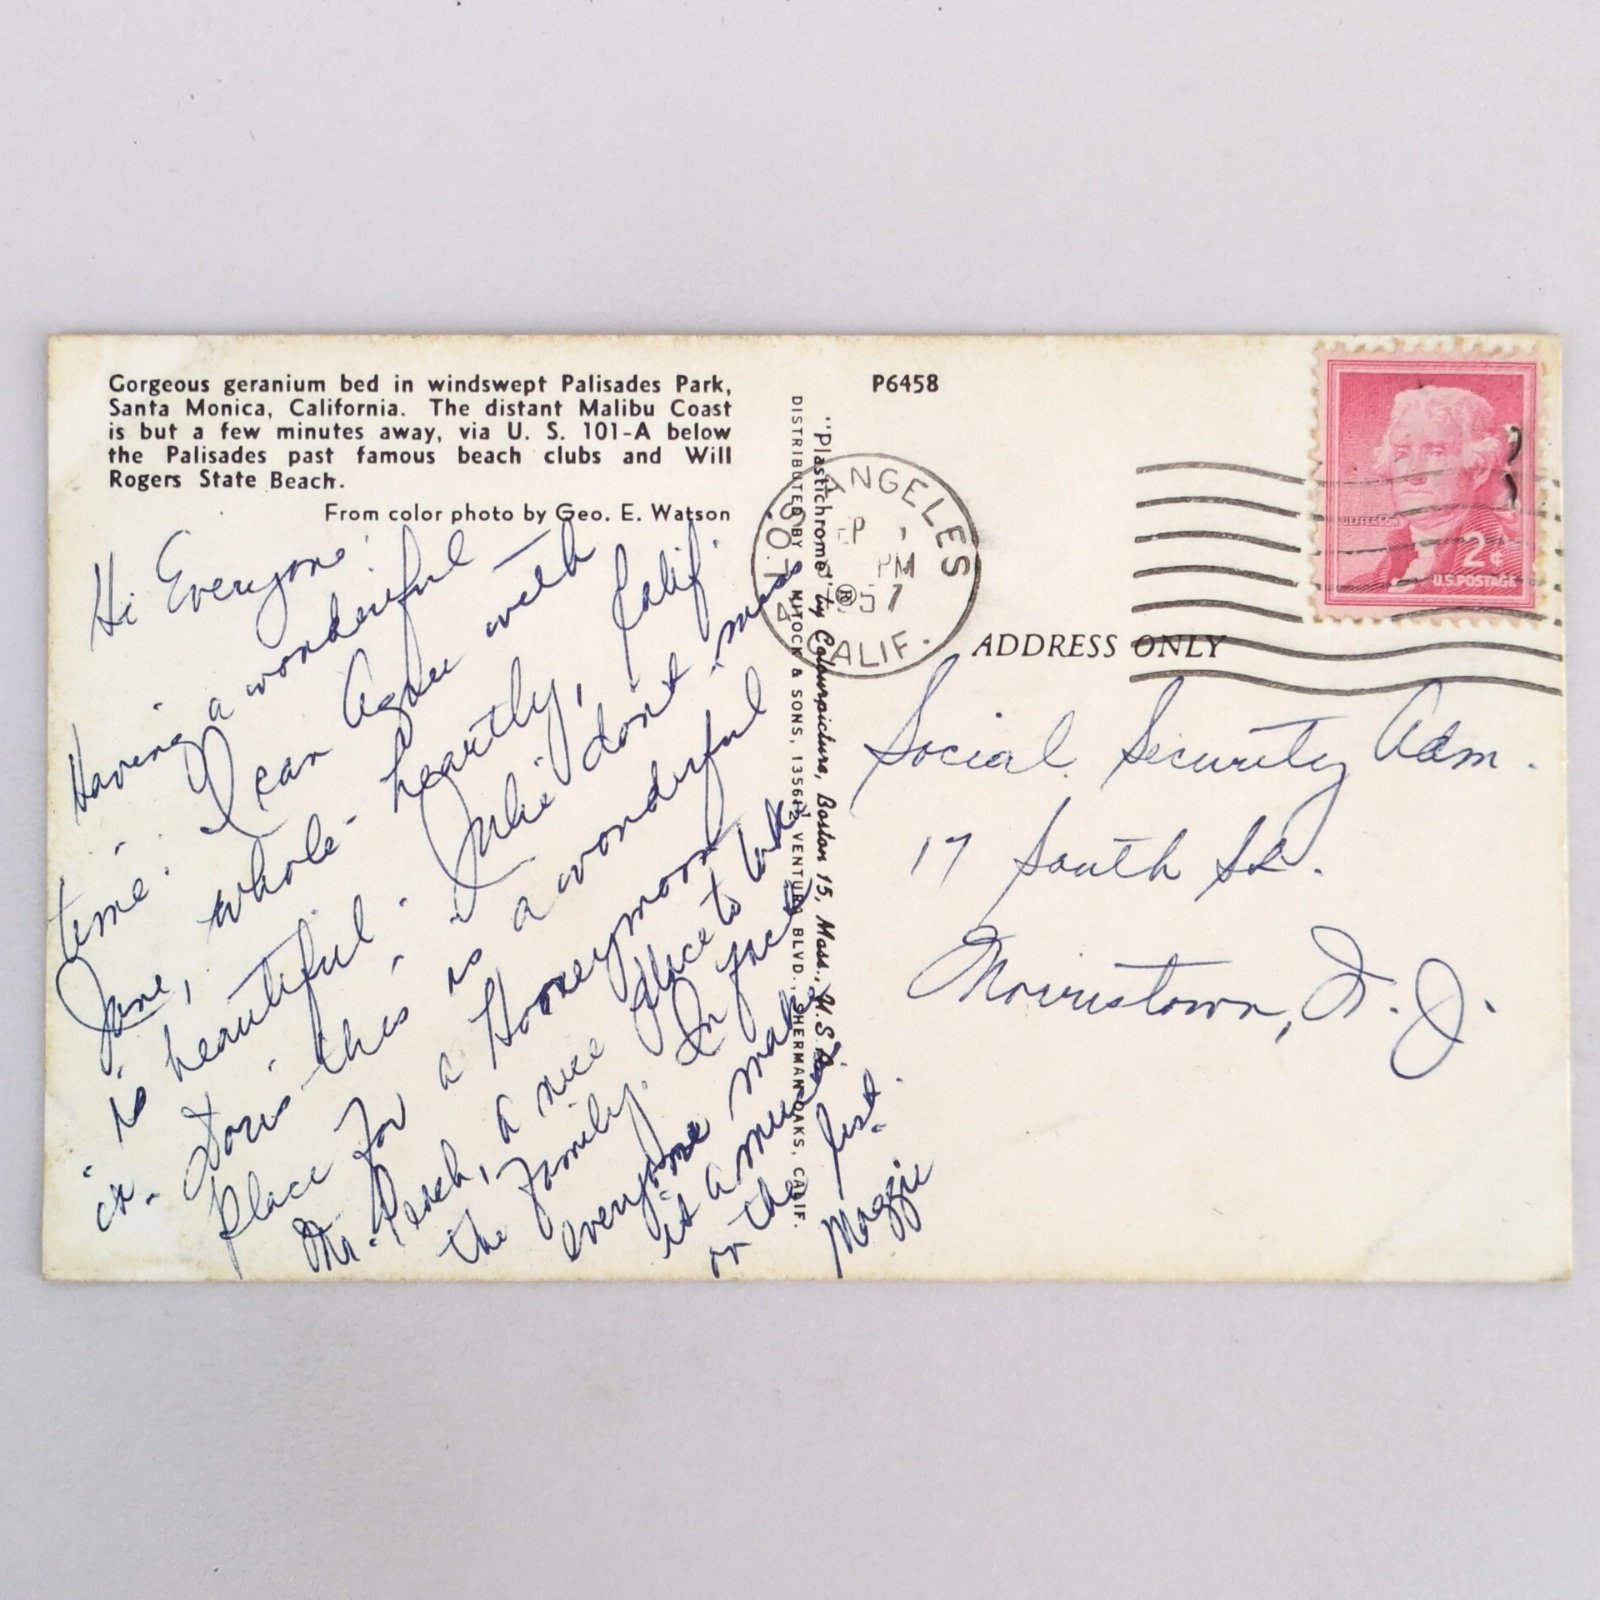 Gorgeous geranium bed in windswept Palisades Park,
Santa Monica, California. The distant Malibu Coast
is but a few minutes away, via U. S. 101-A below
the Palisades past famous beach clubs and Will
Rogers State Beach.
From color photo by Geo. E. Watson
Hi Everyone:
Having a wonderful
time. I can agree with
Jane, whole-heartly, Calif.
is beautiful. Julie don't miss
it. Doris this is a wonderful
place for a Honeymoon
Mr. Peach, a nice place to take
the family. In fact
everyone make
it a must
on the list.
Maggie
"Plastichrome" ® by Colourpicture, Boston 15, Mass., U.S.A.
DISTRIBUTED BY MITOCK & SONS, 13561½ VENTURA BLVD., SHERMAN OAKS, CALIF.
P6458
LOS ANGELES
PM
1957
CALIF.
JEFFERSON
2¢
U.S. POSTAGE
ADDRESS ONLY
Social Security Adm.
17 South St.
Morristown, N. J.